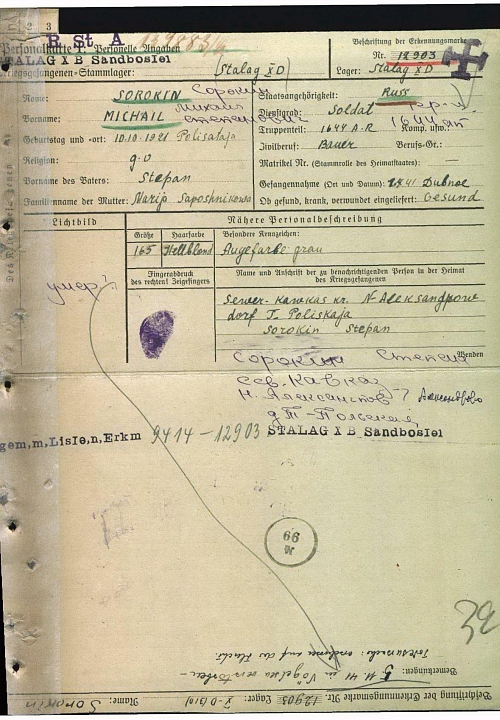 2 3
B St A
Personalkarte I: Personelle Angaben
STALAG X B Sandbostel
Kriegsgefangenen-Stammlager: (Stalag XD)
Beschriftung der Erkennungsmarke
Nr. 12903
Lager: Stalag XD
Name: SOROKIN Сорокин
Vorname: MICHAIL Михаил Степанович
Geburtstag und -ort: 10.10.1921 Polisataja
Religion: g.o
Vorname des Vaters: Stepan
Familienname der Mutter: Marija Saposhnikowa
Staatsangehörigkeit: Russ
Dienstgrad: Soldat
Truppenteil: 1644 A.R Komp. usw.: 1644 ап
Zivilberuf: Bauer Berufs-Gr.:
Matrikel Nr. (Stammrolle des Heimatstaates):
Gefangennahme (Ort und Datum): Dubnoe
Ob gesund, krank, verwundet eingeliefert: Gesund
Lichtbild
Nähere Personalbeschreibung
Größe Haarfarbe Besondere Kennzeichen:
165 Hellblond Augefarbe grau
Fingerabdruck
des rechten! Zeigefingers
Name und Anschrift der zu benachrichtigenden Person in der Heimat
des Kriegsgefangenen
умер?
Sewer-Kawkas kr. N-Aleksandpow
dorf T. Poliskaja
Sorokin Stepan
Wenden
Сорокин Степан
Сев. Кавказ
Н. Александров ?
д Т-Польская
gem,m,Liste,n,Erkm 9414-12903 STALAG X B Sandbostel
66
M
39
Bemerkungen:
Beschriftung der Erkennungsmarke Nr. 12903 Lager: X-D (310)
Name: Sorokin